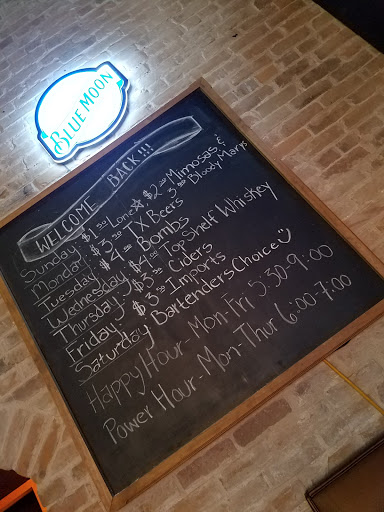 BLUE MOON
WELCOME BACK!!!
Sunday: $1.50 Lone☆, $2.00 Mimosas &
3.00 Bloody Marys
Monday: $3.50 TX Beers
Tuesday: $4.00 Bombs
Wednesday $4.00 Top Shelf Whiskey
Thursday: $3.50 Ciders
Friday: $3.50 Imports
Saturday Bartenders Choice☺
Happy Hour- Mon-Fri 5:30-9:00
Power Hour- Mon-Thur 6:00-7:00